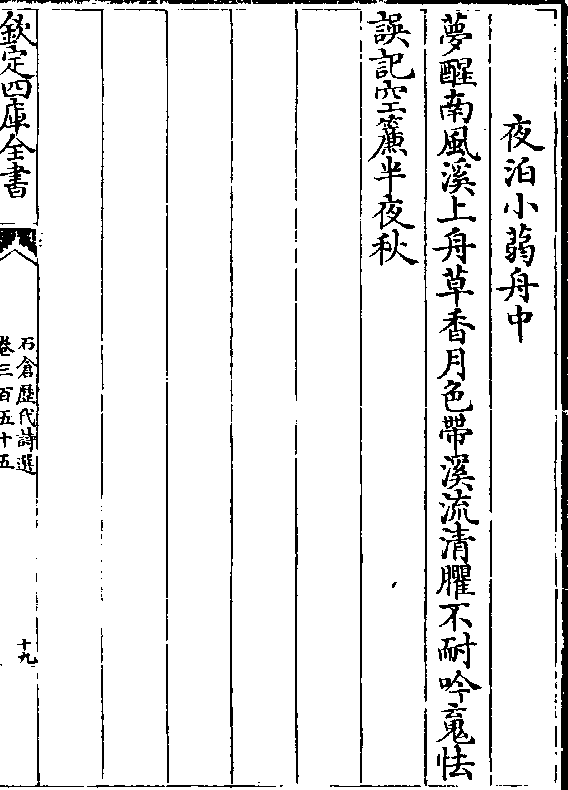 夜泊小蒻舟中
夢醒南風溪上舟草香月色帶溪流清臞不耐吟䰟怯
誤記空簾半夜秋
欽定四庫全書
石倉歷代詩選
卷三百五十五
十九